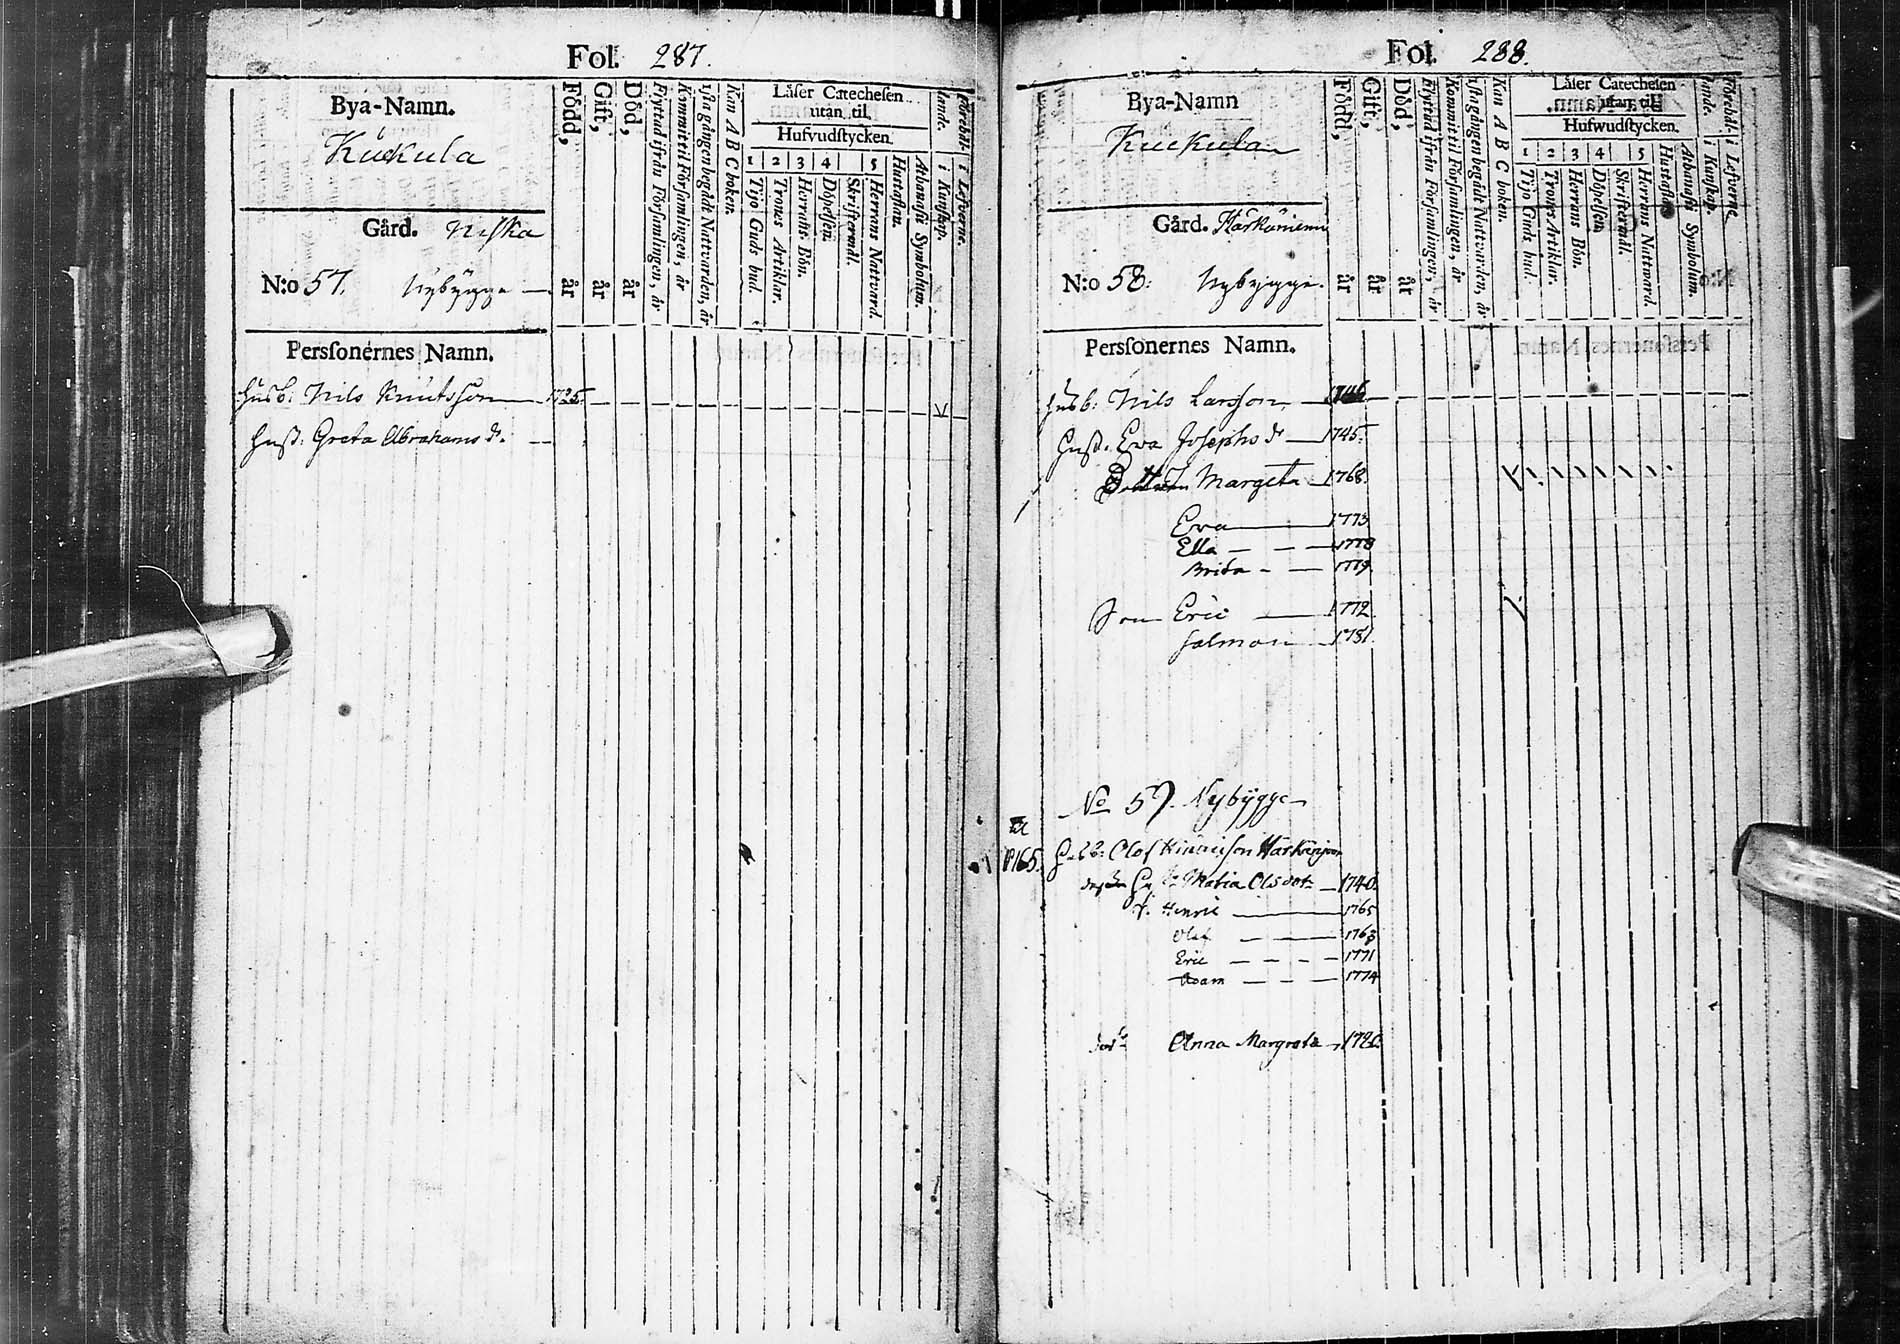 Fol. 287.
Bya-Namn.
Kuckula
Gård. Niska
N:o 57. Nybygge
Perſonernes Namn.
Född, år
Gift, år
Död, år
Flyttad ifrån Förſamlingen, år
Kommit til Förſamlingen, år
1ſta gången begådt Nattvarden, år
Kan A B C boken.
Läſer Catecheſen
utan til.
Hufvudſtycken.
1 2 3 4 5
Tijo Guds bud.
Trones Artiklar.
Herrans Bön.
Döpelſen.
Skriftermål.
Herrans Nattvard.
Huſtaflan.
Athanaſii Symbolum.
i Kunſkap.
i Lefverne.
Husb. Nils Knutsſon 1725.
Huſt. Greta Abrahams dr.
Fol. 288.
Bya-Namn
Kuckula
Gård.
N:o 58. Nybygge.
Perſonernes Namn.
Född, år
Gift, år
Död, år
Flyttad ifrån Förſamlingen, år
Kommit til Förſamlingen, år
1ſta gången begådt Nattvarden, år
Kan A B C boken.
Läſer Catecheſen
utan til.
Hufwudſtycken.
1 2 3 4 5
Tijo Guds bud.
Trones Artiklar.
Herrans Bön.
Döpelſen.
Skriftermål.
Herrans Nattward.
Huſtaflan.
Athanaſii Symbolum.
i Kunſkap.
i Lefverne.
Husb. Nils Larsſon 1746
Huſt. Eva Josephs dr 1745.
Margeta 1768.
Eva 1773
Ella 1778
Brita 1779
Son Eric 1772
Salmon 1781.
No 59. Nybygge
Olof
Maria Olsdotr 1740.
S. Henric 1765
Olof 1763
Eric 1771
Adam 1774
Anna Margreta